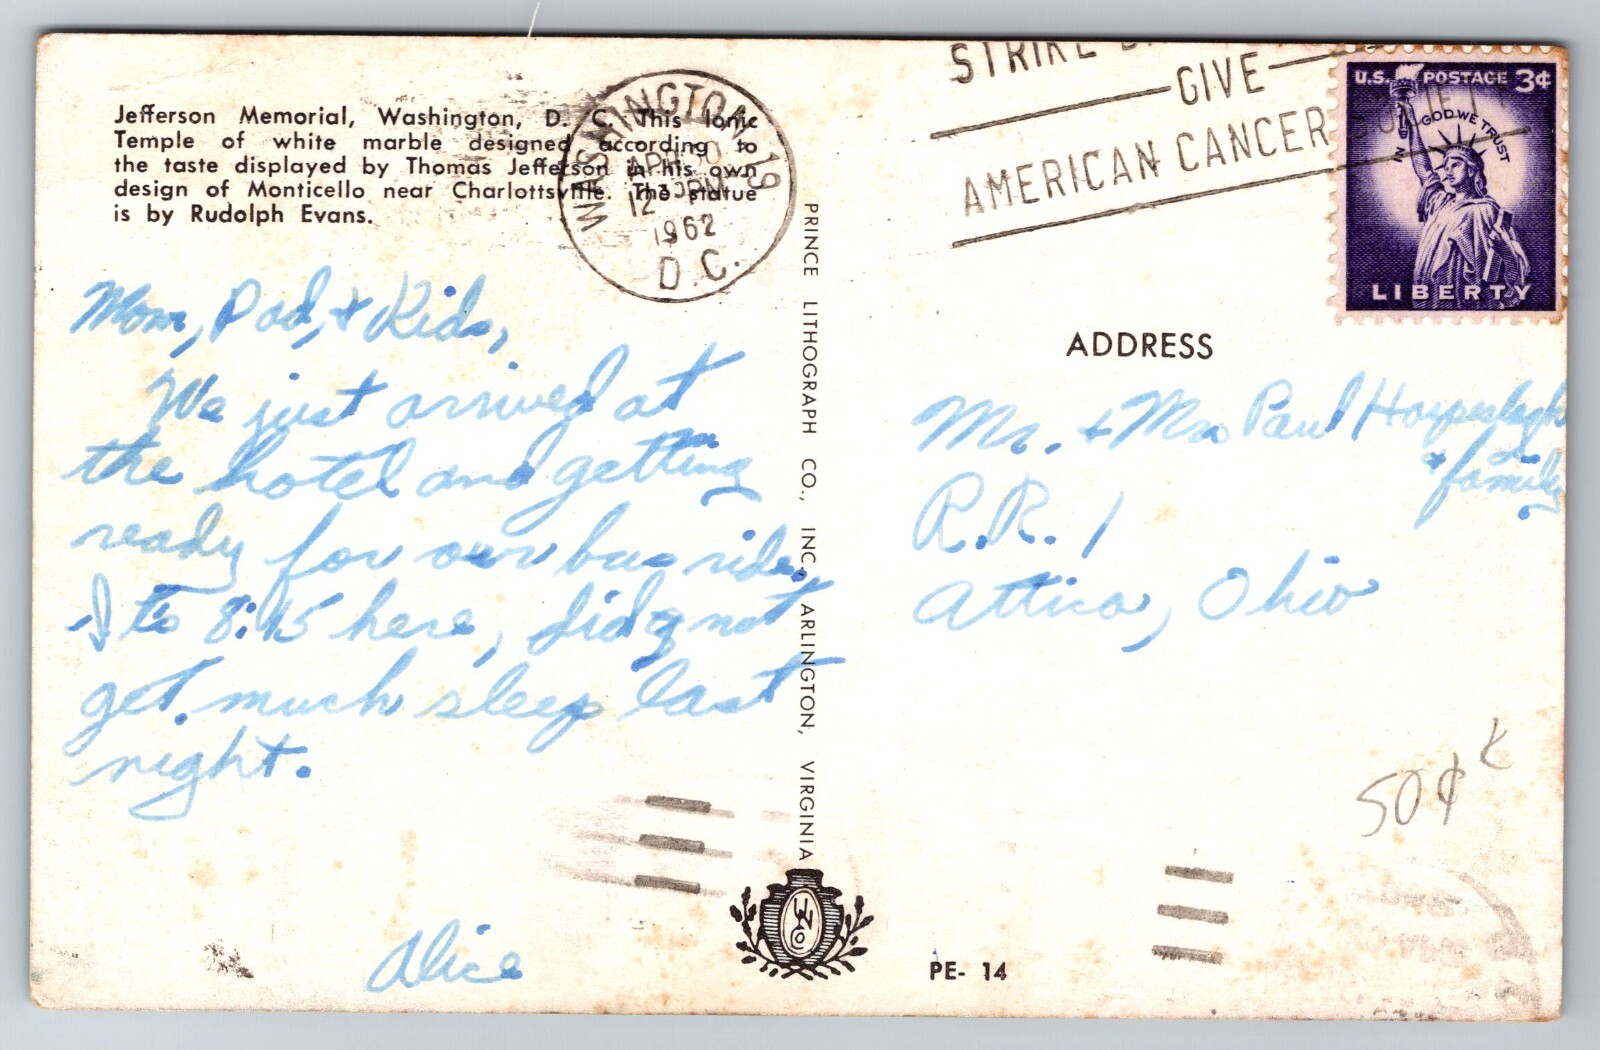 Jefferson Memorial, Washington, D. C. This Ionic
Temple of white marble designed according to
the taste displayed by Thomas Jefferson in his own
design of Monticello near Charlottsville. The statue
is by Rudolph Evans.
WASHINGTON 19
APR 30
12 30 PM
1962
D.C.
STRIKE
GIVE
AMERICAN CANCER SOCIETY
U.S. POSTAGE 3¢
IN GOD WE TRUST
LIBERTY
Mom, Dad, & Kids,
We just arrived at
the hotel and getting
ready for our bus ride.
to 8:15 here, did not
get much sleep last
night.
Alice
PRINCE LITHOGRAPH CO., INC., ARLINGTON, VIRGINIA
ADDRESS
Mr. & Mrs Paul
& family
R.R. 1
Attica, Ohio
50¢
PE- 14